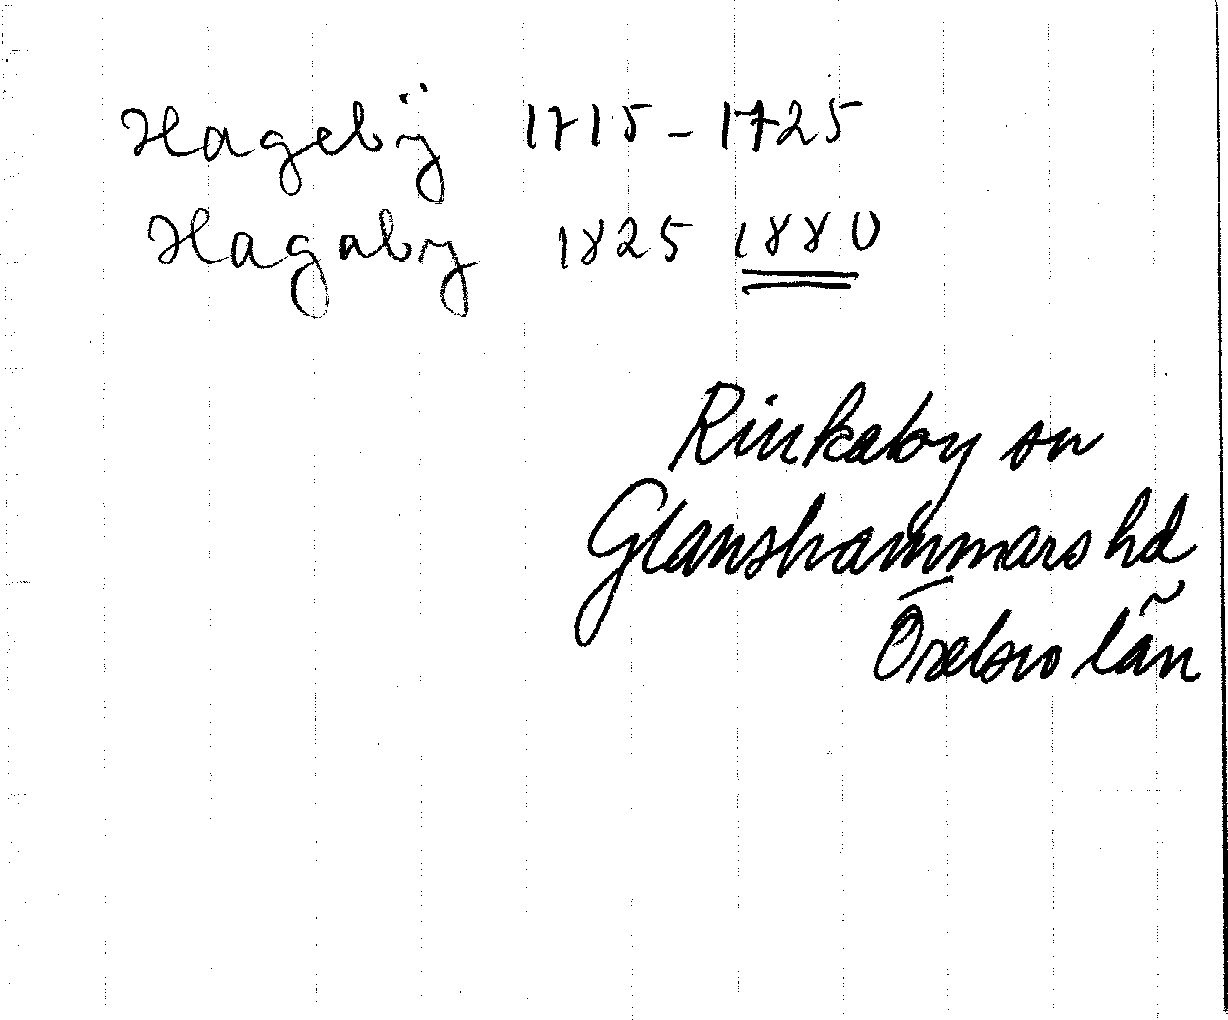 Hagebÿ 1715 - 1725
Hagaby 1825 1880
Rinkaby sn
Glanshammars hd
Örebro län